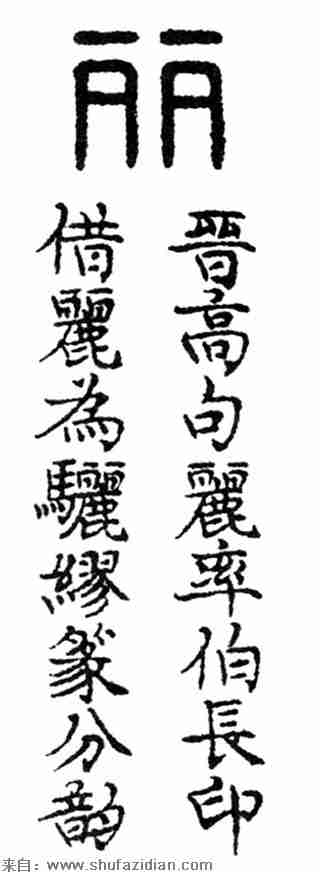 丽
晉高句麗率伯長印
借麗為驪繆篆分韻
来自：www.shufazidian.com